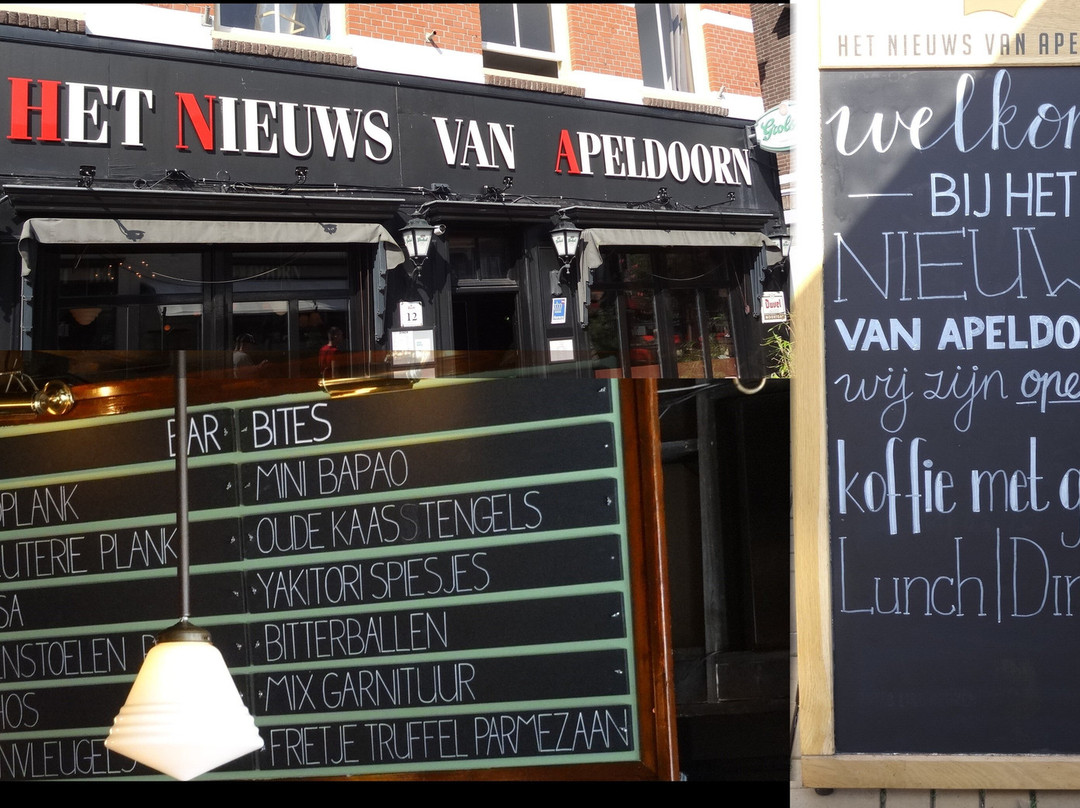 HET NIEUWS VAN APELDOORN
Grols
12
Duvel
BAR BITES
PLANK
MINI BAPAO
UTERIE PLANK
OUDE KAASSTENGELS
SA
YAKITORI SPIESJES
NSTOELEN
BITTERBALLEN
HOS
MIX GARNITUUR
NVLEUGELS
FRIETJE TRUFFEL PARMEZAAN
HET NIEUWS VAN APE
welko
BIJ HET
NIEUW
VAN APELDO
wij zijn ope
koffie met g
Lunch|Din